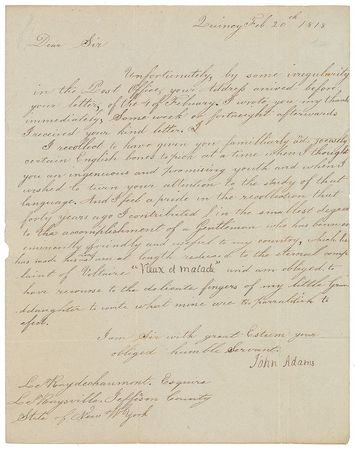 Quincy Feb 20th 1818
Dear Sir
Unfortunately, by some irregularity
in the Post Office, your Address arrived before
your letter, of the 4 of February. I wrote, you, my thanks
immediately, Some week or fortnight afterwards
I received your kind letter. I
I recollect to have given you familliarly and jocosely
certain English bones to pick at a time when I thought
you an ingenuous and promising youth and when I
wished to turn your attention to the study of that
language. And I feel a pride in the recollection that
forty years ago I contributed in the smallest degree
to the accomplishment of a Gentleman who has been so
eminently friendly and useful to my country, which he
has made his at length reduced to the eternal comp
laint of Voltaire "Vieux et malade" and am obliged to
have recourse to the delicate fingers of my little Gran
ddaughter to write what mine are too
effect.
I am Sir with great Esteem your
obliged humble Servant.
John Adams
Le Ray de Chaumont. Esquire
Le Raysville, Jefferson County
State of New York